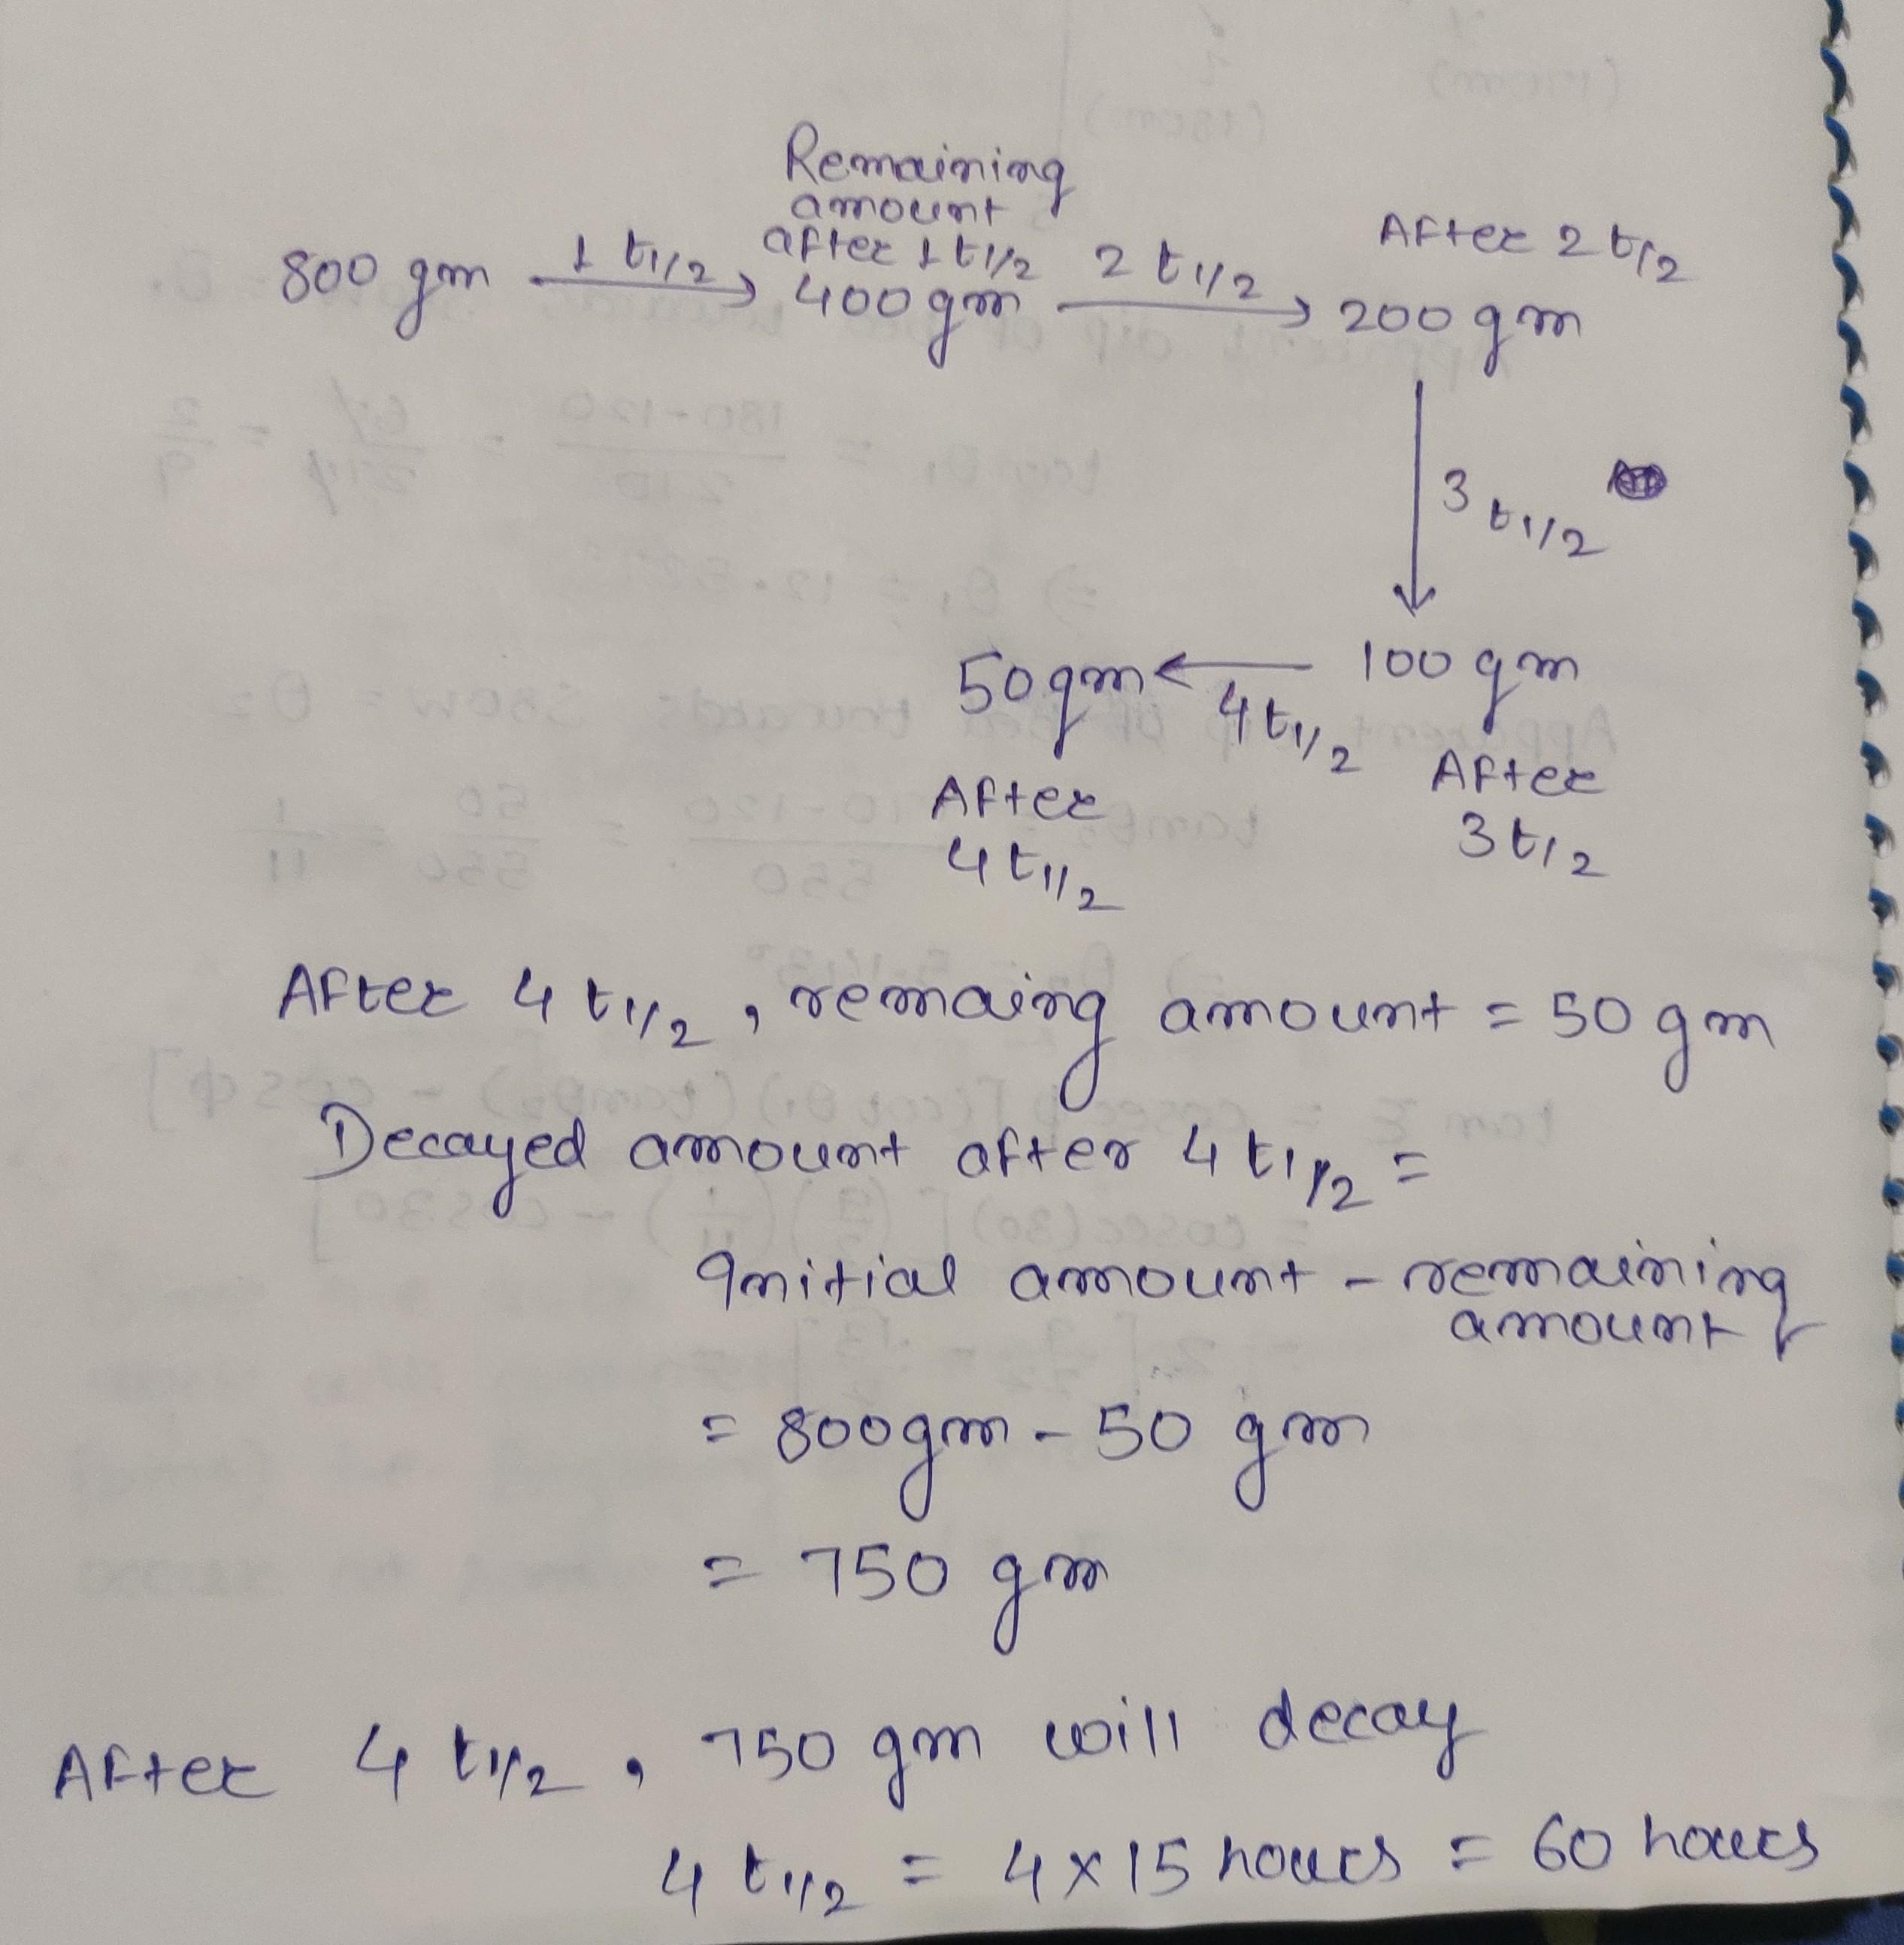 Remaining
amount
after 1 t1/2
800 gm 1 t1/2 → 400 gm 2 t1/2 → 200 gm
After 2 t1/2
3 t1/2
50 gm ← 100 gm
4 t1/2
After
4 t1/2
After
3 t1/2
After 4 t1/2, remaing amount = 50 gm
Decayed amount after 4 t1/2 =
Initial amount - remaining
amount
= 800gm - 50 gm
= 750 gm
After 4 t1/2, 750 gm will decay
4 t1/2 = 4 x 15 hours = 60 hours